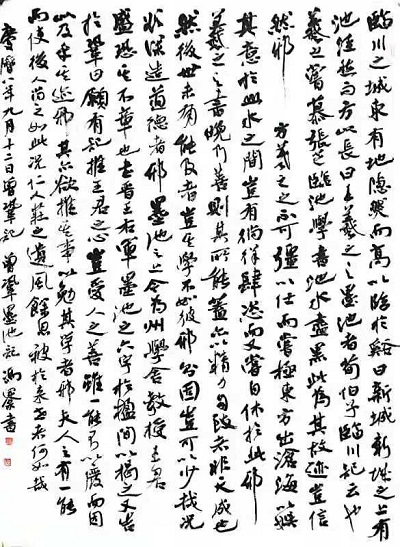 臨川之城東有地隱然而高以臨於谿曰新城新城之上有
池窪然而方以長曰王羲之之墨池者荀伯子臨川記云也
羲之嘗慕張芝臨池學書池水盡黑此為其故迹豈信
然邪 方羲之之不可彊以仕而嘗極東方出滄海以娛
其意於山水之間豈有徜徉肆恣而又嘗自休於此邪
羲之之書晚乃善則其所能蓋亦以精力自致者非天成也
然後世未有能及者豈其學不如彼邪固豈可以少哉況
欲深造道德者邪墨池之上今為州學舍教授王君
盛恐其不章也書晉王右軍墨池之六字於楹間以揭之又告
於鞏曰願有記推王君之心豈愛人之善雖一能不以廢而因
以及乎其迹邪其亦欲推其事以勉其學者邪夫人之有一能
而使後人尚之如此況仁人莊之遺風餘思被於來世者何如哉
慶曆八年九月十二日曾鞏記 曾鞏墨池記 馮書